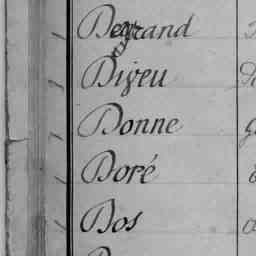 Degrand
Diveu
Donne
Doré
Dos